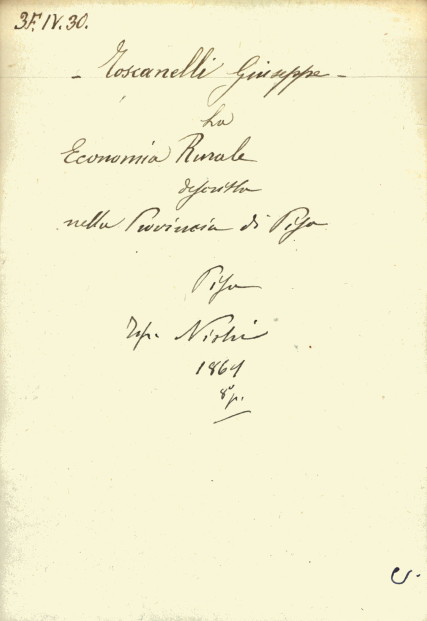 3F.IV.30.
- Toscanelli Giuseppe -
La
Economia Rurale
descritta
nella Provincia di Pisa
Pisa
Tip. Nistri
1861
8° p.